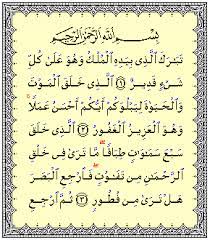 بِسْمِ اللَّهِ الرَّحْمَنِ الرَّحِيمِ
تَبَارَكَ الَّذِي بِيَدِهِ الْمُلْكُ وَهُوَ عَلَىٰ كُلِّ
شَيْءٍ قَدِيرٌ ﴿١﴾ الَّذِي خَلَقَ الْمَوْتَ
وَالْحَيَوٰةَ لِيَبْلُوَكُمْ أَيُّكُمْ أَحْسَنُ عَمَلًا
وَهُوَ الْعَزِيزُ الْغَفُورُ ﴿٢﴾ الَّذِي خَلَقَ
سَبْعَ سَمَٰوَٰتٍ طِبَاقًا مَّا تَرَىٰ فِي خَلْقِ
الرَّحْمَٰنِ مِن تَفَٰوُتٍ فَارْجِعِ الْبَصَرَ
هَلْ تَرَىٰ مِن فُطُورٍ ﴿٣﴾ ثُمَّ ارْجِعِ